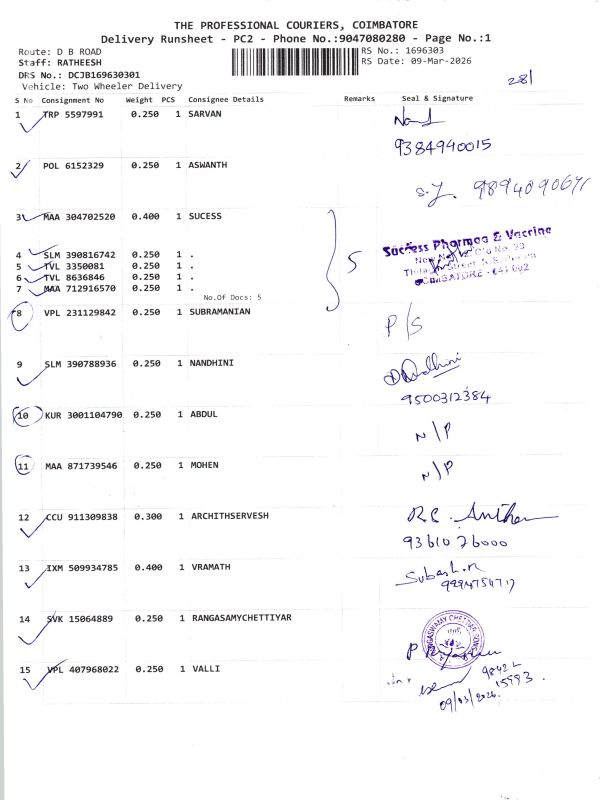 THE PROFESSIONAL COURIERS, COIMBATORE
Delivery Runsheet - PC2 - Phone No.:9047080280 - Page No.:1
Route: D B ROAD
RS No.: 1696303
Staff: RATHEESH
RS Date: 09-Mar-2026
DRS No.: DCJB169630301
Vehicle: Two Wheeler Delivery
28/
S No Consignment No Weight PCS Consignee Details Remarks Seal & Signature
1 TRP 5597991 0.250 1 SARVAN
9384940015
2 POL 6152329 0.250 1 ASWANTH
3 MAA 304702520 0.400 1 SUCESS
5
Success Pharmaa & Vaccine
4 SLM 390816742 0.250 1 .
5 TVL 3350081 0.250 1 .
6 TVL 8636846 0.250 1 .
7 MAA 712916570 0.250 1 .
No.Of Docs: 5
8 VPL 231129842 0.250 1 SUBRAMANIAN
P/S
9 SLM 390788936 0.250 1 NANDHINI
9500312384
10 KUR 3001104790 0.250 1 ABDUL
N/P
11 MAA 871739546 0.250 1 MOHEN
N/P
12 CCU 911309838 0.300 1 ARCHITHSERVESH
93610 26000
13 IXM 509934785 0.400 1 VRAMATH
14 SVK 15064889 0.250 1 RANGASAMYCHETTIYAR
15 VPL 407968022 0.250 1 VALLI
09/03/2026